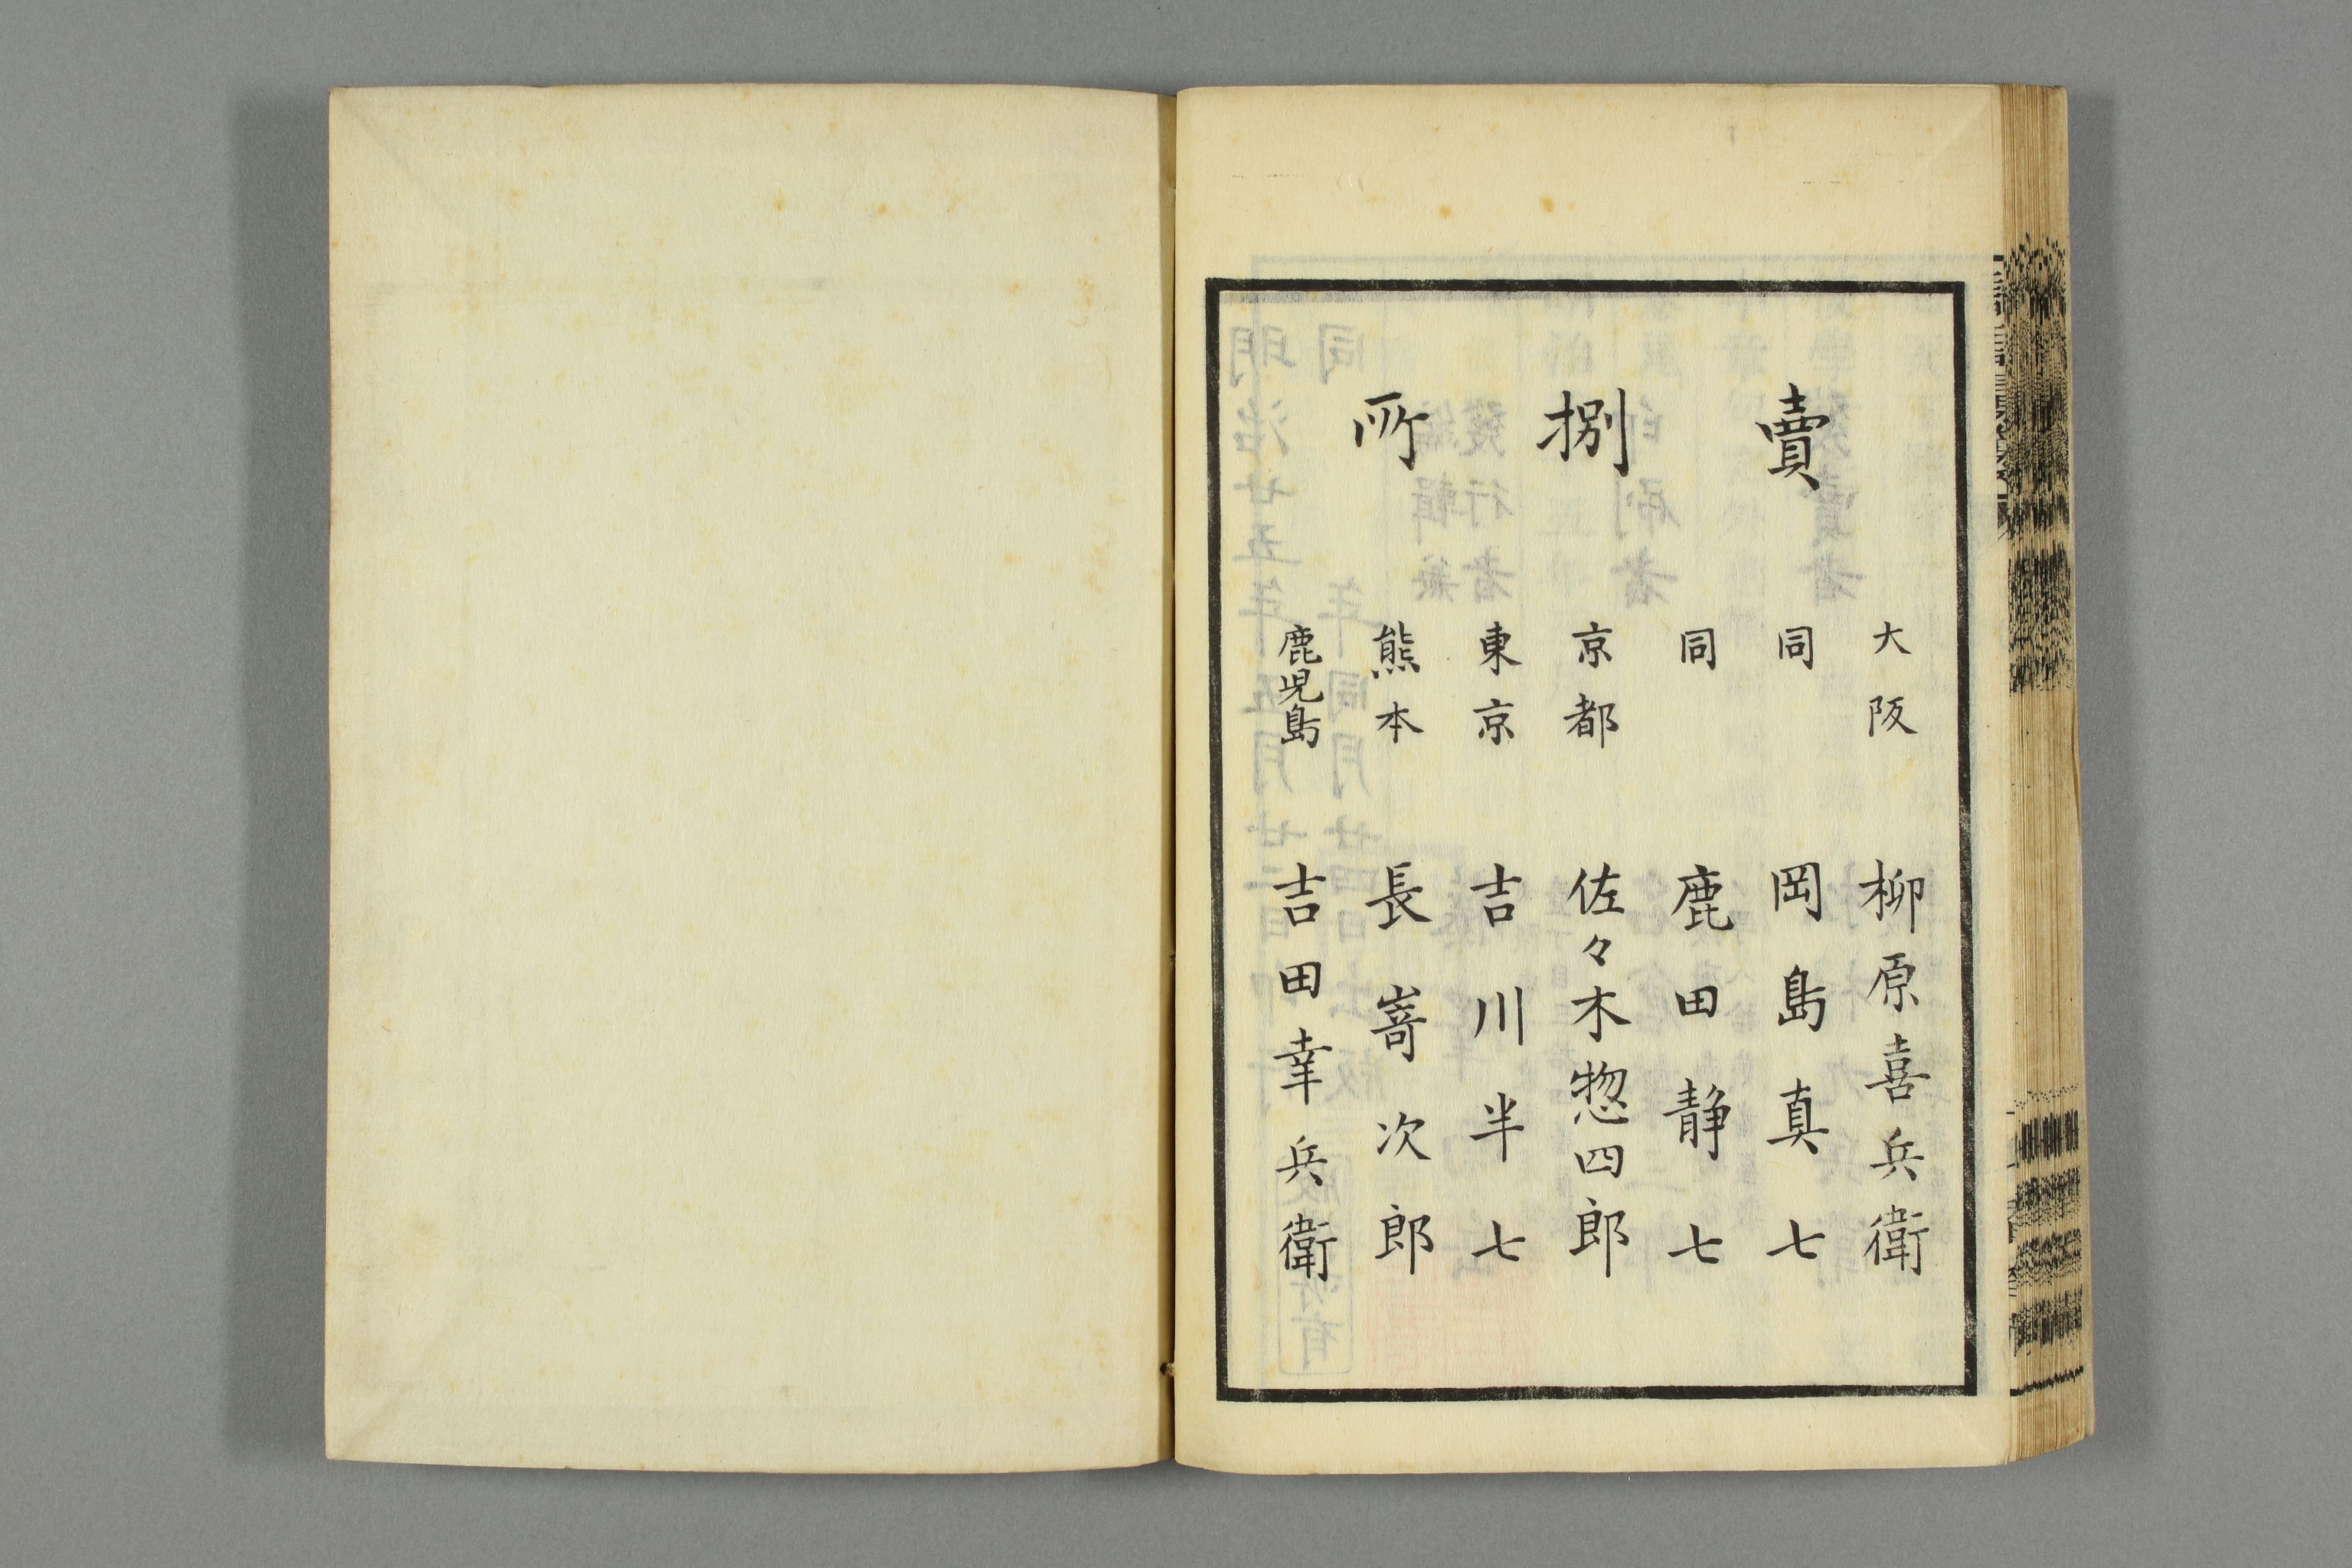 賣捌所
大阪 柳原喜兵衛
同 岡島真七
同 鹿田静七
京都 佐々木惣四郎
東京 吉川半七
熊本 長嵜次郎
鹿児島 吉田幸兵衛